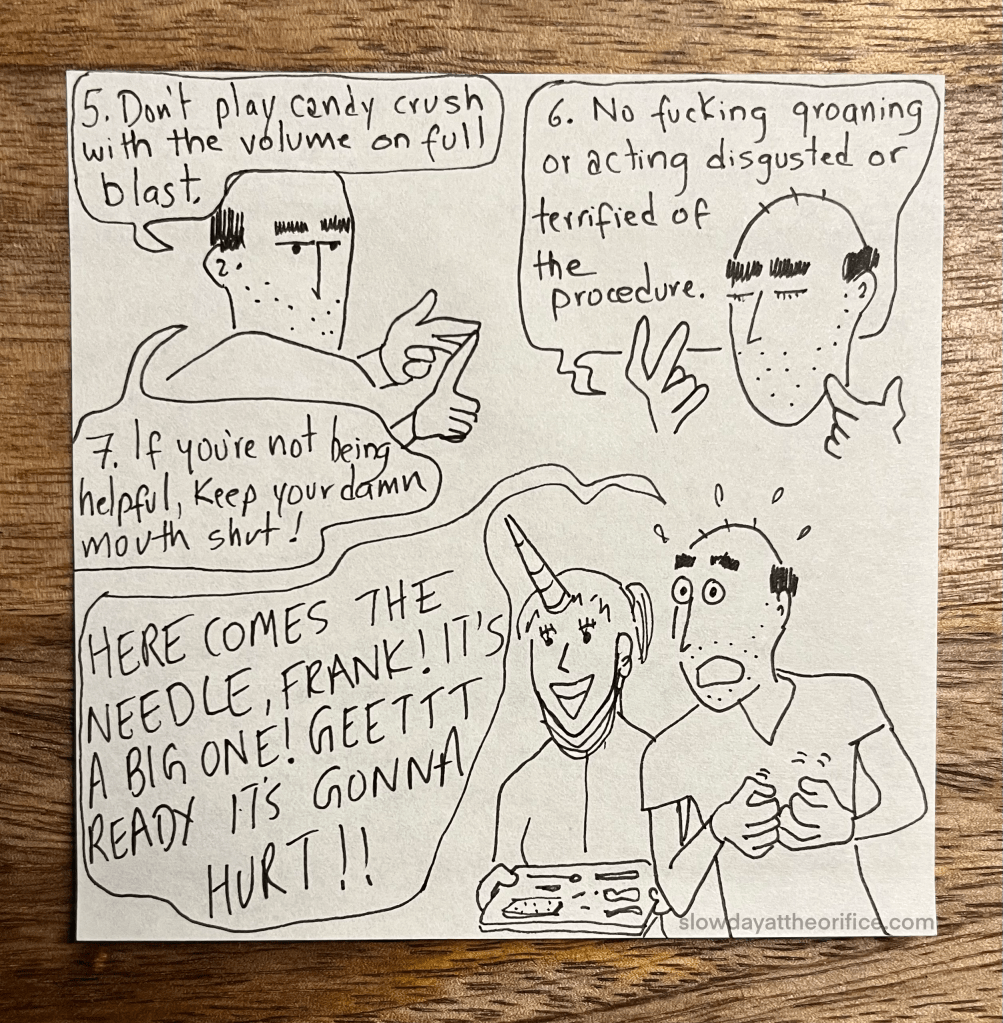 5. Don't play candy crush
with the volume on full
blast.
6. No fucking groaning
or acting disgusted or
terrified of
the
procedure.
7. If you're not being
helpful, Keep your damn
mouth shut!
HERE COMES THE
NEEDLE, FRANK! IT'S
A BIG ONE! GEETTT
READY IT'S GONNA
HURT!!
slowdayattheorifice.com